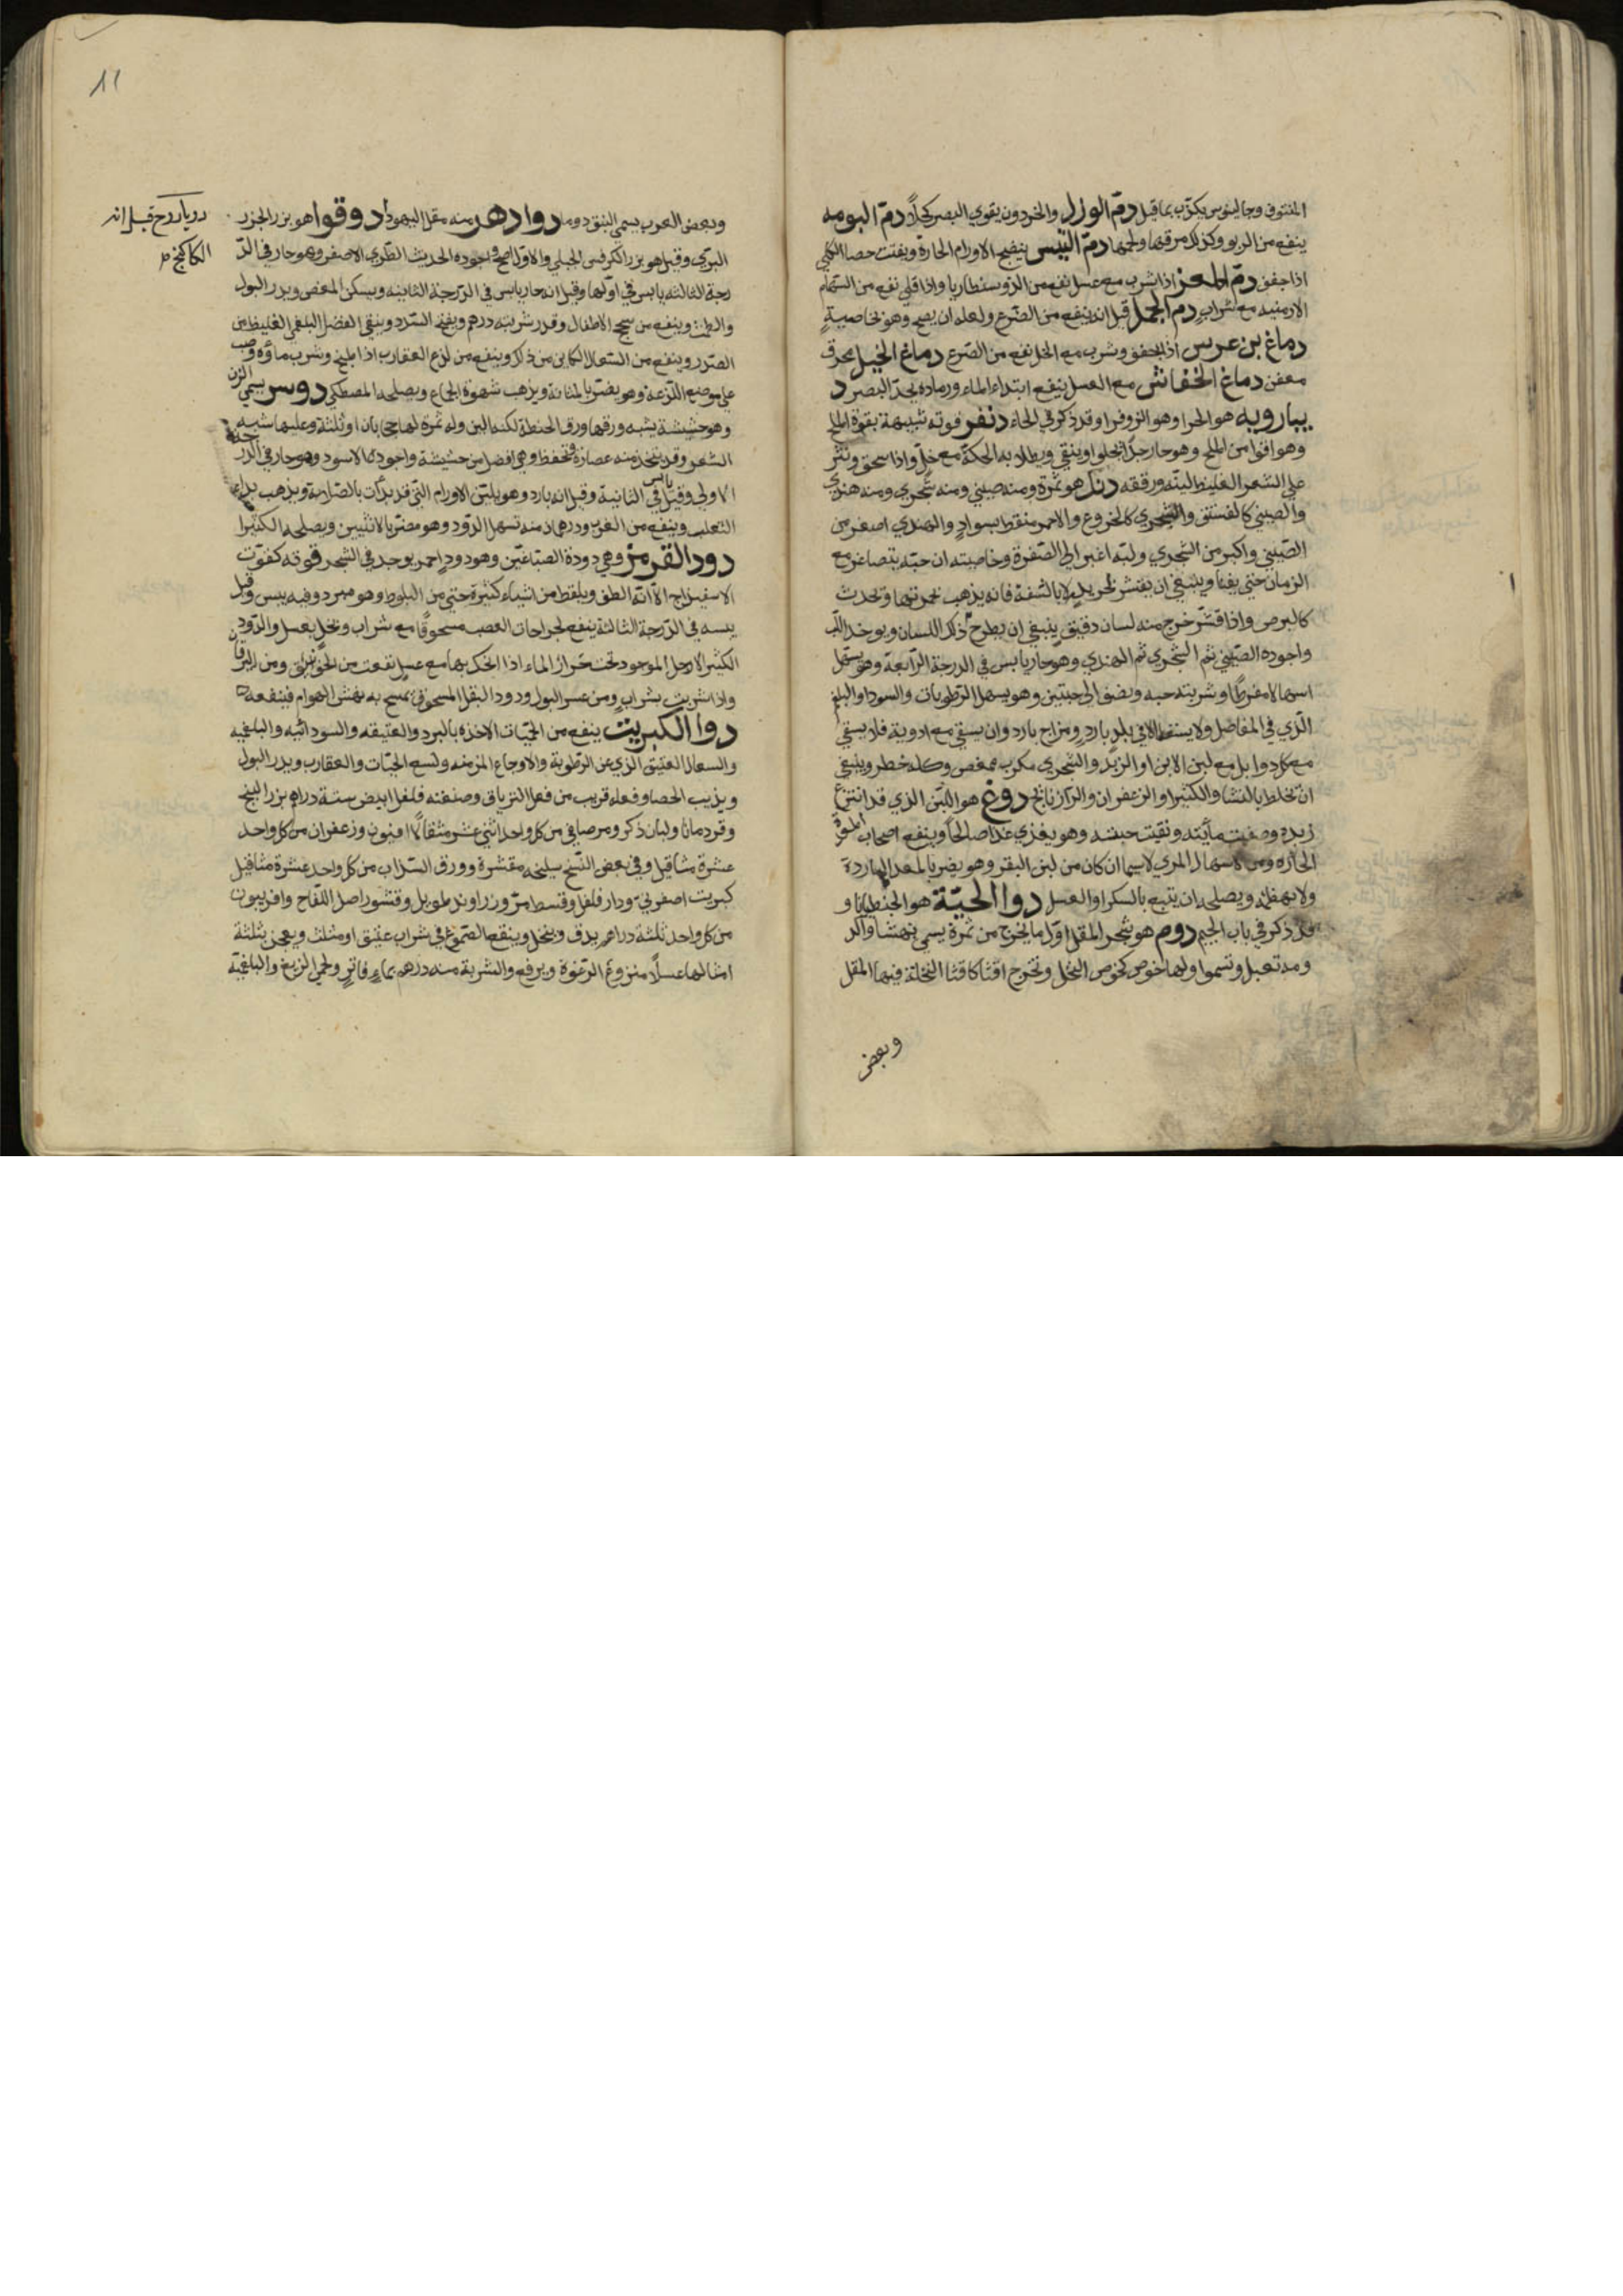 المنتوف وجالينوس يكذب بما قيل دم الورل والحردون يقوي البصر كحلاً دم البومه
ينفع من الربو وكذلك مرقتها ولحمها دم التيس ينضج الاورام الحارة ويفتت حصا الكلي
اذا جفف دم المعز اذا شرب مع عسل نفع من الذوسنطاريا واذا قلي نفع من السهام
الارمنيه مع شراب دم الجمل قيل انه ينفع من الصرع ولعله ان يصح وهو بخاصية
دماغ بن عرس اذا جفف وشرب مع الخل نفع من الصرع دماغ الخيل محرق
معفن دماغ الخفاش مع العسل ينفع ابتداء الماء ورماده يحد البصر د
يبارويه هو الحزا وهو الزوفرا وقد ذكر في الحاء دنفر قوته شبيهة بقوة الملح
وهو اقوا من الملح وهو حار جدًا يجلوا وينقي ويطلا به الحكة مع خل واذا سحق ونثر
علي الشعر الغليظ لينه ورققه دند هو ثمرة ومنه صيني ومنه شجري ومنه هندي
والصيني كالفستق والشجري كالخروع والاحمر منقط بسواد والهندي اصغر من
الصيني واكبر من الشجري ولبه اغبر الي الصفرة وخاصيته ان حبه يتصاغر مع
الزمان حتي يفنا وينبغي ان يقشر بحديد لا بالشفة فانه يذهب بحمرتها ويحدث
كالبرص واذا قشر خرج منه لسان دقيق ينبغي ان يطرح ذلك اللسان ويوخد اللب
واجوده الصيني ثم الشجري ثم الهندي وهو حار يابس في الدرجة الرابعة وهو يسهل
اسهالا مفرطًا وشربته حبه ونصف الي حبتين وهو يسهل الرطوبات والسودا والبلغم
الذي في المفاصل ولا يستعمل الا في بلد بارد ومزاج بارد وان يسقي مع ادوية فلا يسقي
مع كل دوا بل مع لبن الاتن او الزبد والشجري مكرب ممغص وكله خطر وينبغي
ان يخلط بالنشا والكثيرا والزعفران والرازيانج دوغ هو اللبن الذي قد انتزع
زبده وصفيت مائيته ونقيت جبنته وهو يغذي غذا صالحًا وينفع اصحاب المعدة
الحاره ومن الاسهال المري لاسيما ان كان من لبن البقر وهو يضر بالمعد الباردة
ولا يهضمه ويصلحه ان يتبع بالسكر او العسل دوا الحية هو الجنطيانا و
قد ذكر في باب الجيم دوم هو شجر المقل اول ما يخرج من ثمرة يسمي بهشا والدو
ومه تعبل وتسموا ولها خوص كخوص النخل وتخرج اقنا كاقنا النخلة فيها المقل
وبعض
١١
وبعض العرب يسمي النبق دوما دوادهر منه مقل اليهود دوقوا هو بزر الجزر
البري وقيل هو بزر الكرفس الجبلي والاول اصح واجوده الحديث الطري الاصفر وهو حار في الد
رجة الثالثه يابس في اولها وقيل انه حار يابس في الدرجة الثانيه ويسكن المغص ويدر البول
والطمث وينفع من سحج الاطفال وقدر شربته درهم ويفتح السدد وينقي الفضل البلغمي الغليظ من
الصدر وينفع من السعال الكاين من ذلك وينفع من لدغ العقارب اذا طبخ وشرب ماؤه وصب
علي موضع اللدغة وهو يضر بالمثانة ويذهب شهوة الجماع ويصلحه المصطكي دوسر يسمي الزن
وهو حشيشة يشبه ورقها ورق الحنطة لكنه الين وله ثمرة لها حجابان او ثلثة وعليها شبيه
الشعر وقد يتخذ منه عصارة وتحفظ وهي افضل من حشيشة واجودها الاسود وهو حار في الدرجة
الاولي وقيل يابس في الثانية وقيل انه بارد وهو يلين الاورام التي قد بدأت بالصلابة ويذهب بداء
الثعلب وينفع من الغرب ودرهمان منه تسهل الدود وهو مضر بالانثيين ويصلحه الكثيرا
دود القرمز وهي دودة الصباغين وهو دود احمر يوجد في الشجر قوته كقوت
الاسفيداج الا انه الطف ويلقط من اشياء كثيرة حتي من البلوط وهو مبرد وفيه يبس وقيل
يبسه في الدرجة الثالثة ينفع لجراحات العصب مسحوقًا مع شراب وبخل بعسل والدود
الكثير الارجل الموجود تحت جرار الماء اذا احنك بها مع عسل نفعت من الخوانيق ومن اليرقان
واذا شربت بشراب ومن عسر البول ودود البقل المسحوق تمسح به نهش الهوام فينفعه
دوا الكبريت ينفع من الحميات الاخذه بالبرد والعتيقه والسودائيه والبلغميه
والسعال العتيق الذي عن الرطوبة والاوجاع المزمنه ولسع الحيات والعقارب ويدر البول
ويذيب الحصا وفعله قريب من فعل الترياق وصنعته فلفل ابيض ستة دراهم بزر البنج
وقردمانا ولبان ذكر ومر صافي من كل واحد اثني عشر مثقالاً افيون وزعفران من كل واحد
عشرة مثاقيل وفي بعض النسخ سليخه مقشرة وورق السذاب من كل واحد عشرة مثاقيل
كبريت اصفر ودار فلفل وقسط مر وزراوند طويل وقشور اصل اللفاح وافربيون
من كل واحد ثلثة دراهم يدق وينخل وينقع الصموغ في شراب عتيق او مثلث ويعجن بثلثة
امثالها عسلًا منزوع الرغوة ويرفع والشربة منه درهم بماء فاتر ولحمي الربع والبلغمية
دريا روح قيل انه
الكاكنج